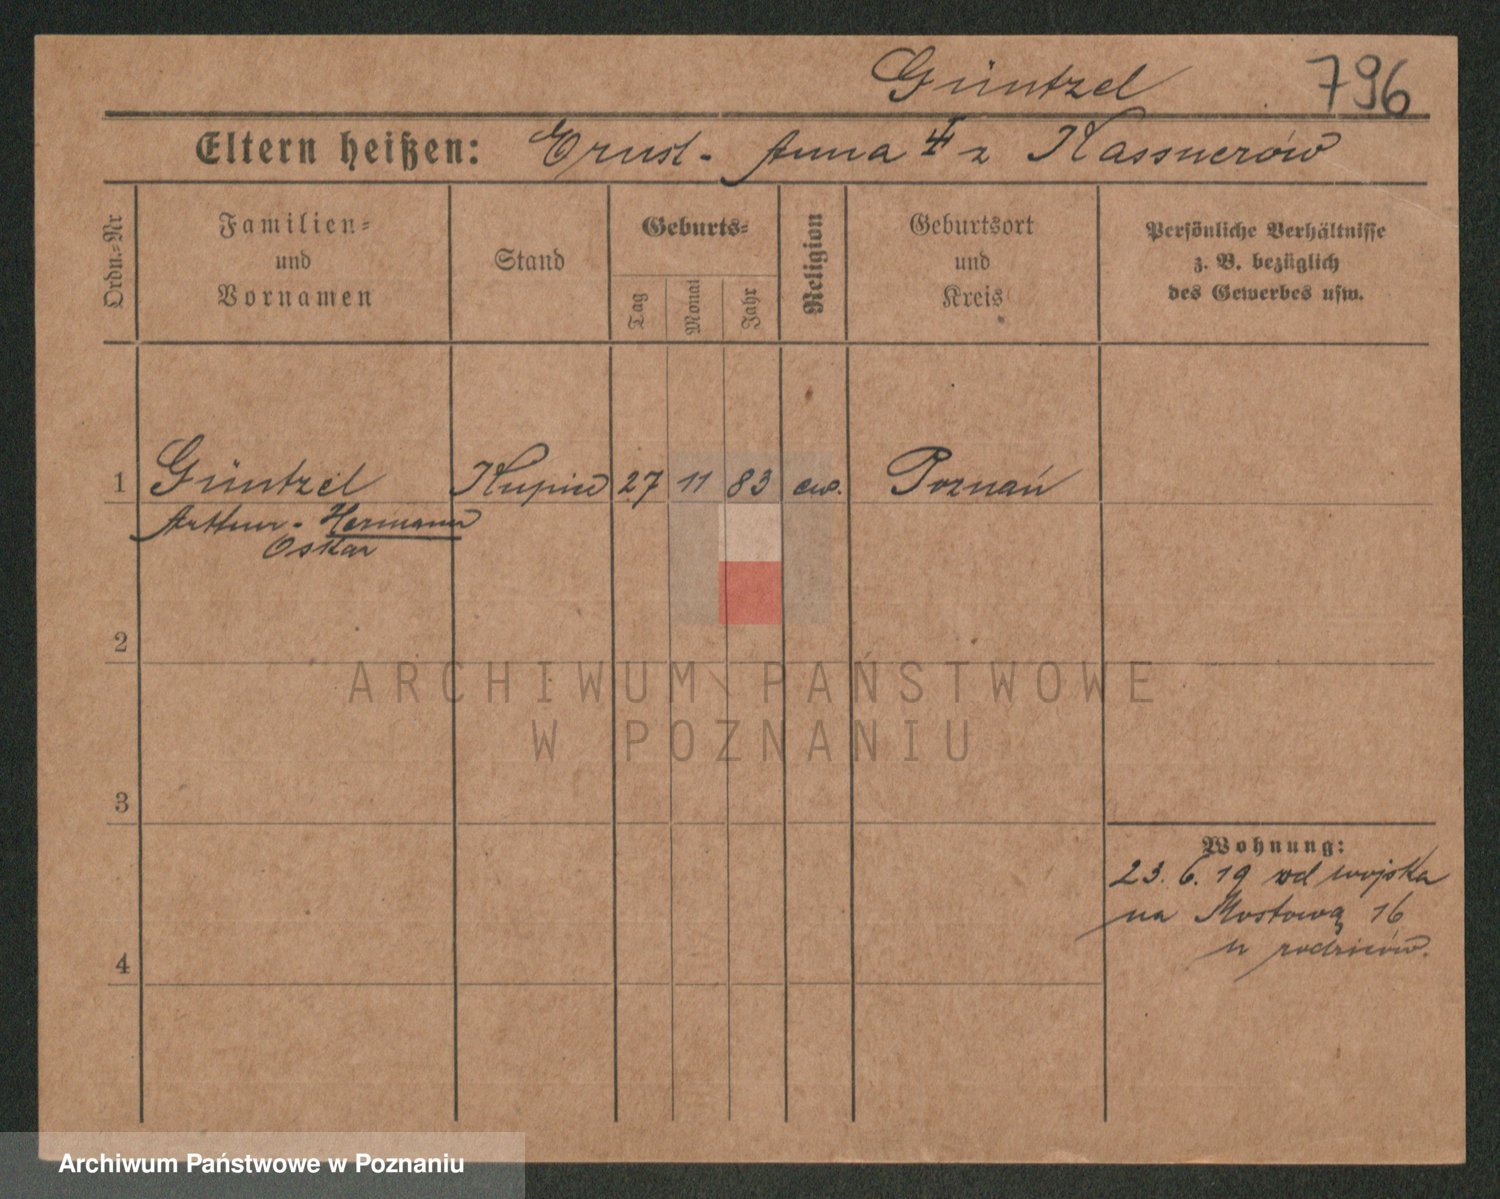 Güntzel 796
Eltern heißen: Ernst - Anna z Kassnerów
Ordn.-Nr
Familien-
und
Vornamen
Stand
Geburts-
Tag
Monat
Jahr
Religion
Geburtsort
und
Kreis
Persönliche Verhältnisse
z. B. bezüglich
des Gewerbes usw.
1 Güntzel Kupiec 27 11 83 ew. Poznań
Arthur - Hermann
Oskar
2
3
4
Wohnung:
23. 6. 19 od wojska
na Mostową 16
u rodziców.
ARCHIWUM PAŃSTWOWE
W POZNANIU
Archiwum Państwowe w Poznaniu